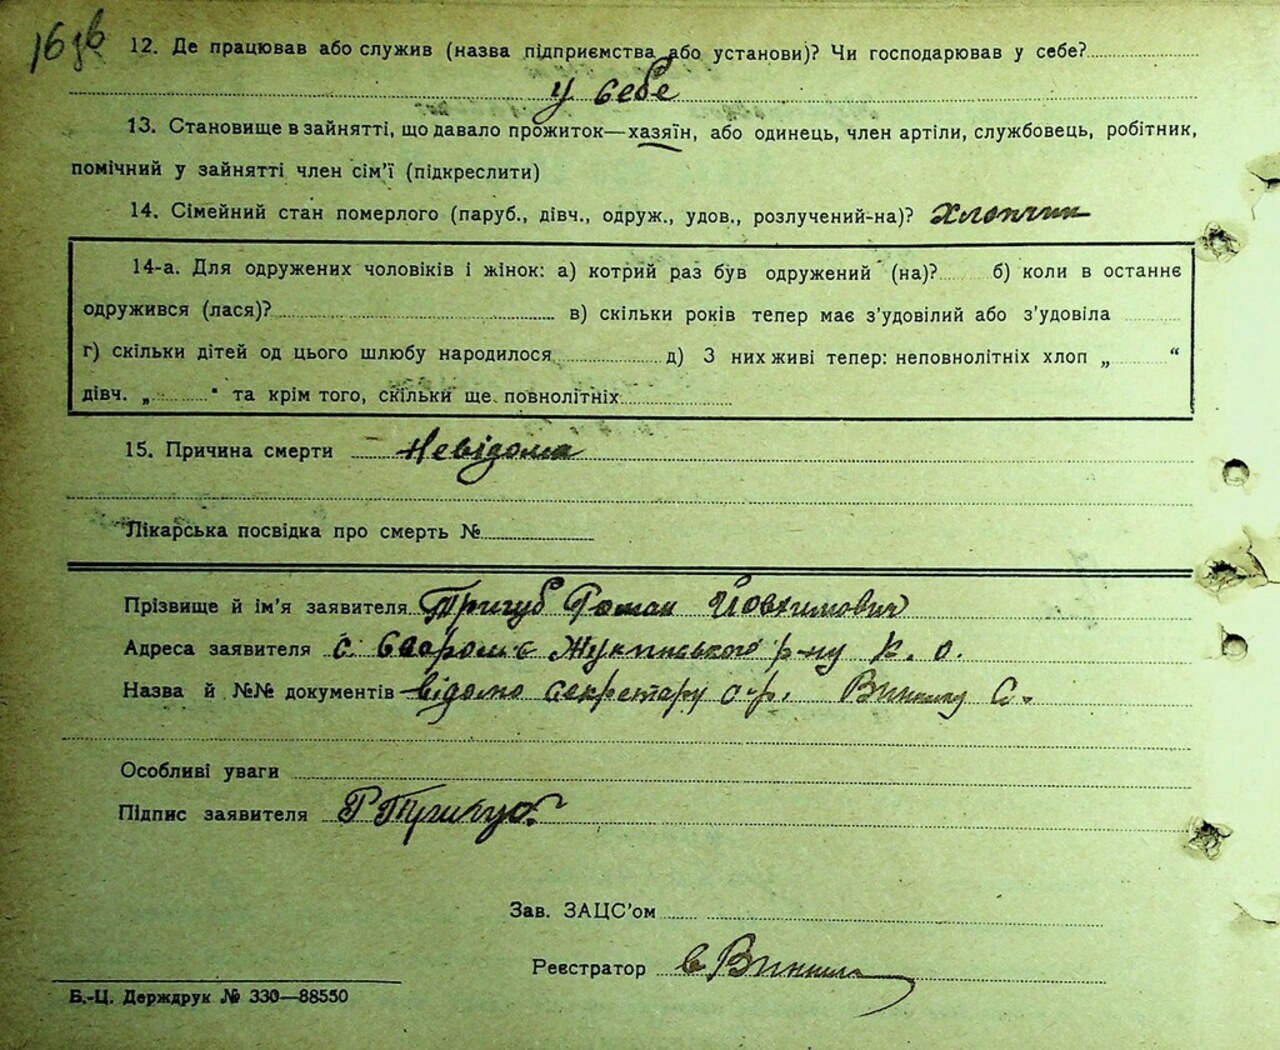 16 зв
12. Де працював або служив (назва підприємства або установи)? Чи господарював у себе?
у себе
13. Становище в зайнятті, що давало прожиток—хазяїн, або одинець, член артіли, службовець, робітник,
помічний у зайнятті член сім'ї (підкреслити)
14. Сімейний стан померлого (паруб., дівч., одруж., удов., розлучений-на)? Хлопчик
14-а. Для одружених чоловіків і жінок: а) котрий раз був одружений (на)? б) коли в останнє
одружився (лася)? в) скільки років тепер має з'удовілий або з'удовіла
г) скільки дітей од цього шлюбу народилося д) З них живі тепер: неповнолітніх хлоп „ “
дівч. „ " та крім того, скільки ще повнолітніх
15. Причина смерти Невідома
Лікарська посвідка про смерть №
Прізвище й ім'я заявителя Тригуб Роман Йовхимович
Адреса заявителя с. Жукинського р-ну К. о.
Назва й №№ документів відомо секретару с-р. С.
Особливі уваги
Підпис заявителя Р Тригуб
Зав. ЗАЦС'ом
Реєстратор
Б.-Ц. Держдрук № 330—88550